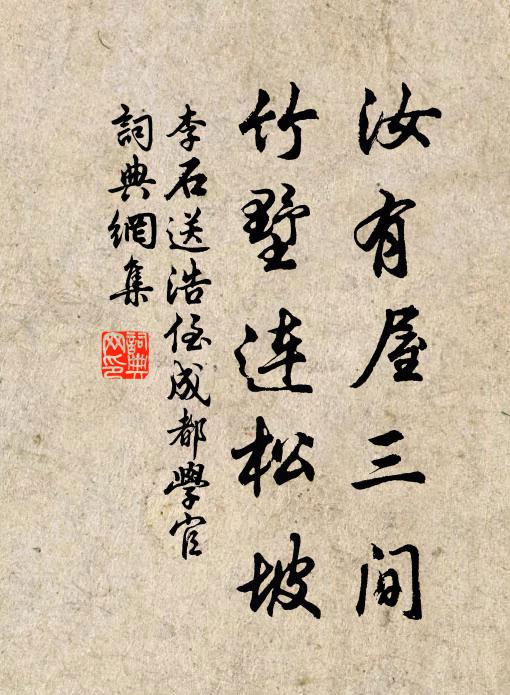 汝有屋三间
竹墅连松坡
李石送浩侄成都學官
詞典網集
詞典
网印